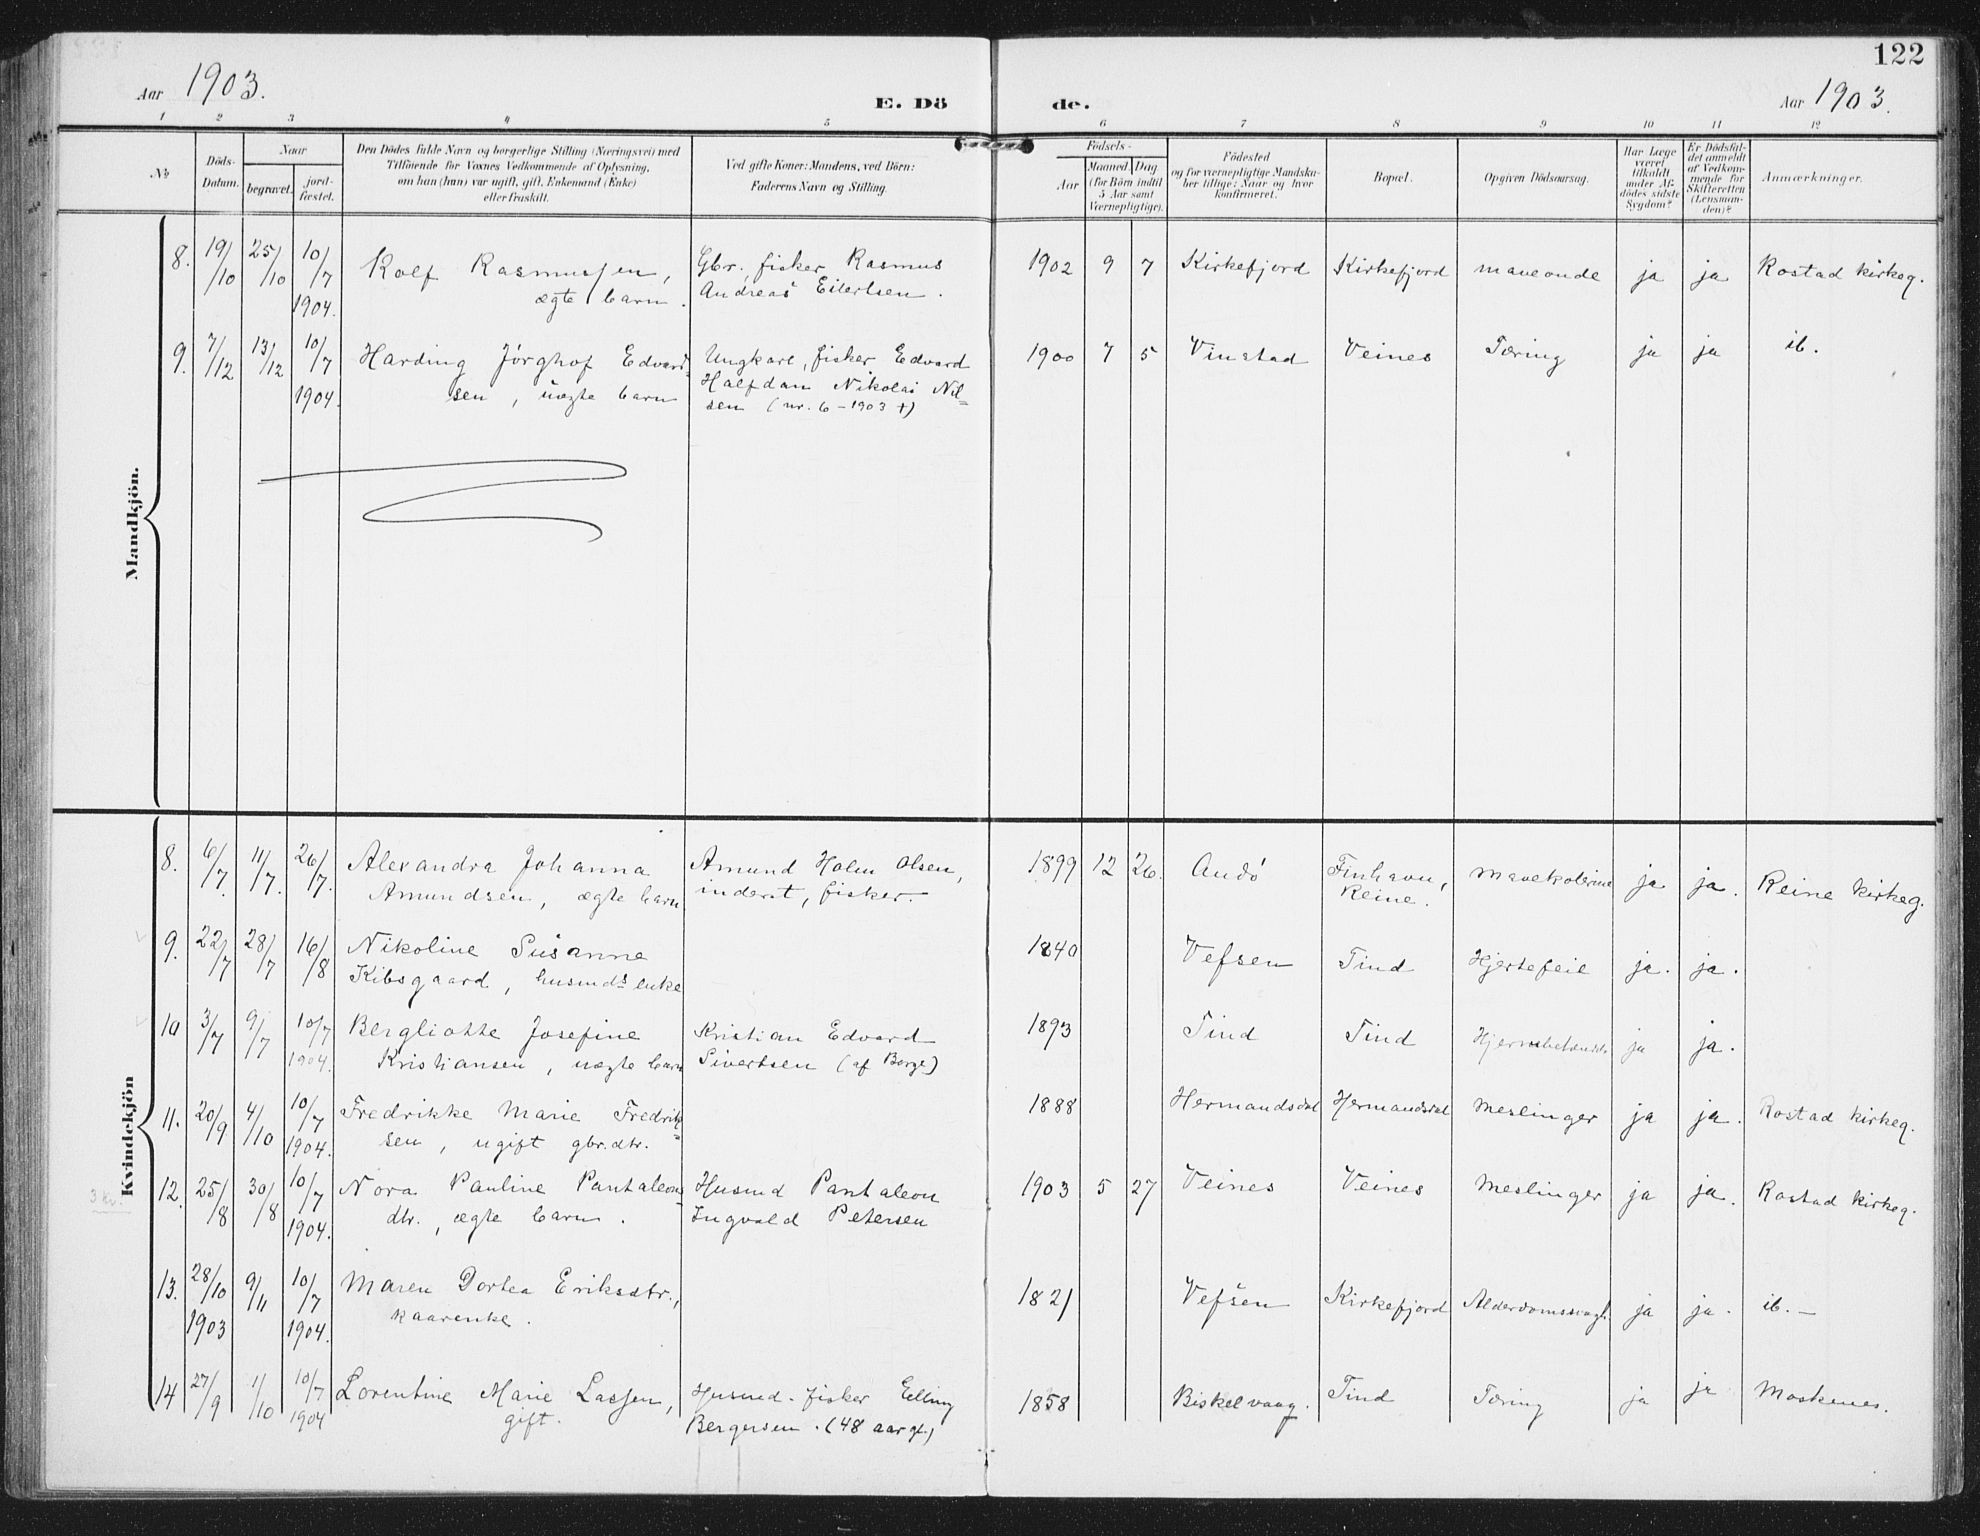 122
Aar 1903.
E. Dö de.
Aar 1903.
1 2 3 4 5 6 7 8 9 10 11 12
No
Döds-
Datum.
Naar
begravet.
jord-
fæstet.
Den Dödes fulde Navn og borgerlige Stilling (Næringsvei) med
Tilföiende for Voxnes Vedkommende af Oplysning,
om han (hun) var ugift, gift, Enkemand (Enke)
eller fraskilt.
Ved gifte Koner: Mandens, ved Börn:
Faderens Navn og Stilling.
Födsels-
Aar
Maaned Dag
(for Börn indtil
5 Aar samt
Værnepligtige).
Födested
og for værnepligtige Mandska-
ber tillige: Naar og hvor
konfirmeret.
Bopæl.
Opgiven Dödsaarsag.
Har Læge
været
tilkaldt
under Af-
dödes sidste
Sygdom?
Er Dödsfal-
det anmeldt
af Vedkom-
mende for
Skifteretten
(Lensman-
den)?
Anmærkninger.
Mandkjön.
8. 19/10 25/10 10/7 1904. Rolf Rasmussen, ægte barn. Gbr., fisker Rasmus
Andreas Eilertsen. 1902 9 7 Kirkefjord Kirkefjord maveonde ja ja Rostad kirkeg.
9. 7/12 13/12 10/7 1904. Harding Jörghof Edvard=
sen, uægte barn Ungkarl, fisker Edvard
Halfdan Nikolai Nil=
sen (nr. 6 - 1903 +) 1900 7 5 Vinstad Veines Tæring ja ja ib.
Kvindekjön
8. 6/7 11/7. 26/7. Alexandra Johanna
Amundsen, ægte barn Amund Holm Olsen,
inderst, fisker. 1899 12 26. Andö Finhavn,
Reine. mavekolerine ja ja. Reine kirkeg.
9. 22/7 28/7 16/8 Nikoline Susanne
Kibsgaard, husmds enke 1840 Vefsen Tind Hjertefeil ja. ja.
10 3/7 9/7 10/7 1904. Bergliotte Josefine
Kristiansen, uægte barn Kristian Edvard
Sivertsen (af Borge) 1893 Tind Tind ja ja.
11. 20/9 4/10 10/7 1904. Fredrikke Marie Fredrik=
sen, ugift gbr.dtr. 1888 Hermandsdal Hermandsdal Meslinger ja ja. Rostad kirkeg.
3 kv.
12. 25/8 30/8 10/7 1904. Nora Pauline Pantaleons=
dtr., ægte barn. Husmd Pantaleon
Ingvald Petersen 1903 5 27 Veines Veines Meslinger ja ja. Rostad kirkeg.
13. 28/10 1903 9/11 10/7 1904. Maren Dortea Eriksdtr.,
kaarenke. 1821 Vefsen Kirkefjord Alderdomssvagh. ja ja. ib. —
14 27/9 1/10 10/7 1904 Lorentine Marie Lassen,
gift. Husmd. fisker Elling
Bergersen. (48 aar gl.) 1858 Biskelvaag. Tind Tæring ja ja Moskenes.